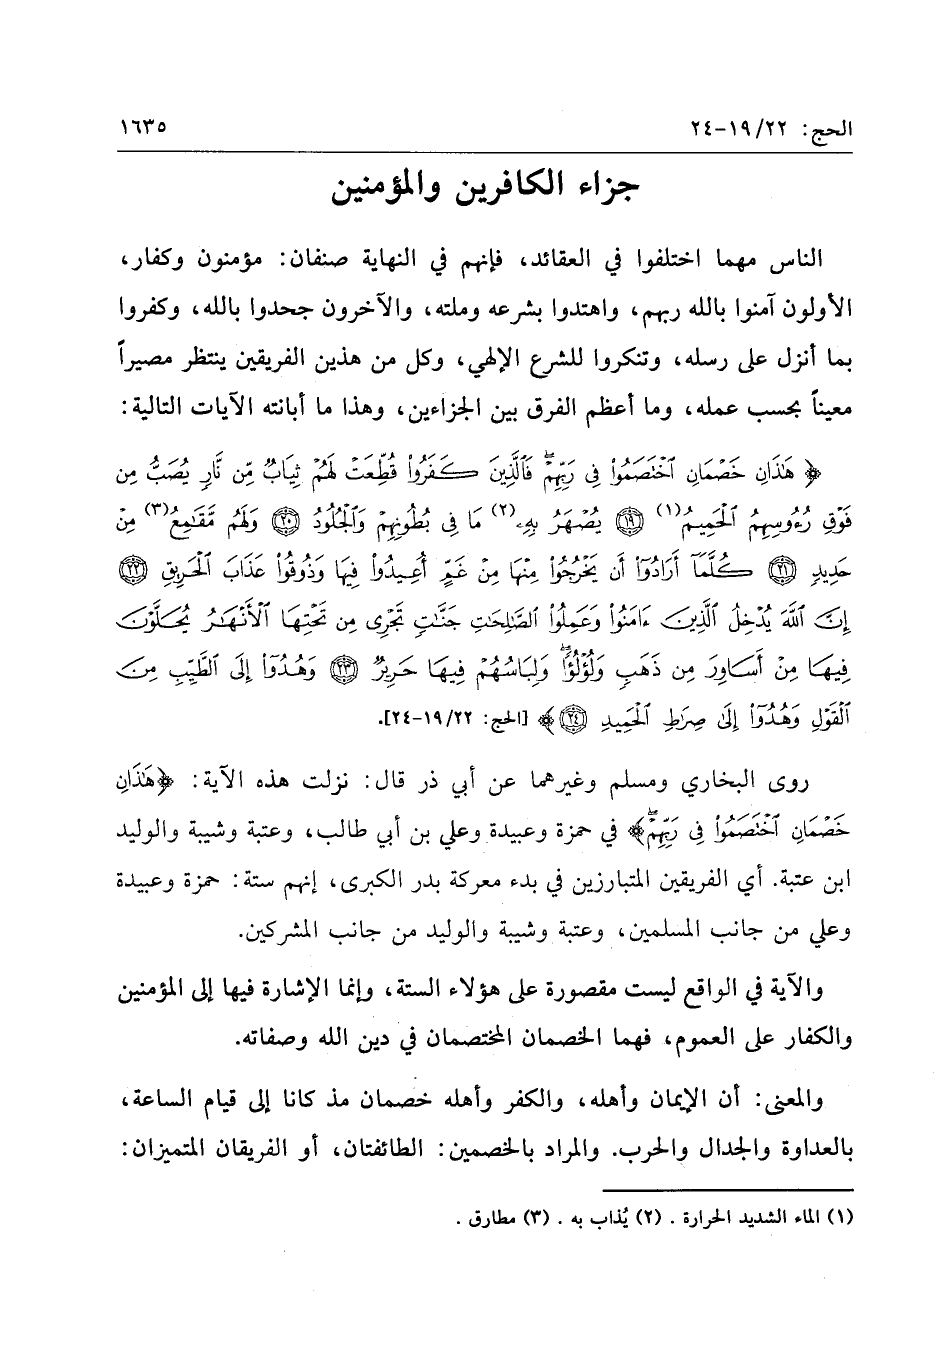 الحج: ٢٢/ ١٩-٢٤ ١٦٣٥
جزاء الكافرين والمؤمنين
الناس مهما اختلفوا في العقائد، فإنهم في النهاية صنفان: مؤمنون وكفار،
الأولون آمنوا بالله ربهم، واهتدوا بشرعه وملته، والآخرون جحدوا بالله، وكفروا
بما أنزل على رسله، وتنكروا للشرع الإلهي، وكل من هذين الفريقين ينتظر مصيراً
معيناً بحسب عمله، وما أعظم الفرق بين الجزاءين، وهذا ما أبانته الآيات التالية:
﴿ هَٰذَانِ خَصْمَانِ ٱخْتَصَمُوا۟ فِى رَبِّهِمْ ۖ فَٱلَّذِينَ كَفَرُوا۟ قُطِّعَتْ لَهُمْ ثِيَابٌ مِّن نَّارٍ يُصَبُّ مِن
فَوْقِ رُءُوسِهِمُ ٱلْحَمِيمُ(١) ۝١٩ يُصْهَرُ بِهِۦ(٢) مَا فِى بُطُونِهِمْ وَٱلْجُلُودُ ۝٢٠ وَلَهُم مَّقَٰمِعُ(٣) مِنْ
حَدِيدٍ ۝٢١ كُلَّمَآ أَرَادُوٓا۟ أَن يَخْرُجُوا۟ مِنْهَا مِنْ غَمٍّ أُعِيدُوا۟ فِيهَا وَذُوقُوا۟ عَذَابَ ٱلْحَرِيقِ ۝٢٢
إِنَّ ٱللَّهَ يُدْخِلُ ٱلَّذِينَ ءَامَنُوا۟ وَعَمِلُوا۟ ٱلصَّٰلِحَٰتِ جَنَّٰتٍ تَجْرِى مِن تَحْتِهَا ٱلْأَنْهَٰرُ يُحَلَّوْنَ
فِيهَا مِنْ أَسَاوِرَ مِن ذَهَبٍ وَلُؤْلُؤًا ۖ وَلِبَاسُهُمْ فِيهَا حَرِيرٌ ۝٢٣ وَهُدُوٓا۟ إِلَى ٱلطَّيِّبِ مِنَ
ٱلْقَوْلِ وَهُدُوٓا۟ إِلَىٰ صِرَٰطِ ٱلْحَمِيدِ ۝٢٤ ﴾ [الحج: ٢٢/ ١٩-٢٤].
روى البخاري ومسلم وغيرهما عن أبي ذر قال: نزلت هذه الآية: ﴿هَٰذَانِ
خَصْمَانِ ٱخْتَصَمُوا۟ فِى رَبِّهِمْ ۖ﴾ في حمزة وعبيدة وعلي بن أبي طالب، وعتبة وشيبة والوليد
ابن عتبة. أي الفريقين المتبارزين في بدء معركة بدر الكبرى، إنهم ستة: حمزة وعبيدة
وعلي من جانب المسلمين، وعتبة وشيبة والوليد من جانب المشركين.
والآية في الواقع ليست مقصورة على هؤلاء الستة، وإنما الإشارة فيها إلى المؤمنين
والكفار على العموم، فهما الخصمان المختصمان في دين الله وصفاته.
والمعنى: أن الإيمان وأهله، والكفر وأهله خصمان مذ كانا إلى قيام الساعة،
بالعداوة والجدال والحرب. والمراد بالخصمين: الطائفتان، أو الفريقان المتميزان:
(١) الماء الشديد الحرارة . (٢) يُذاب به . (٣) مطارق .